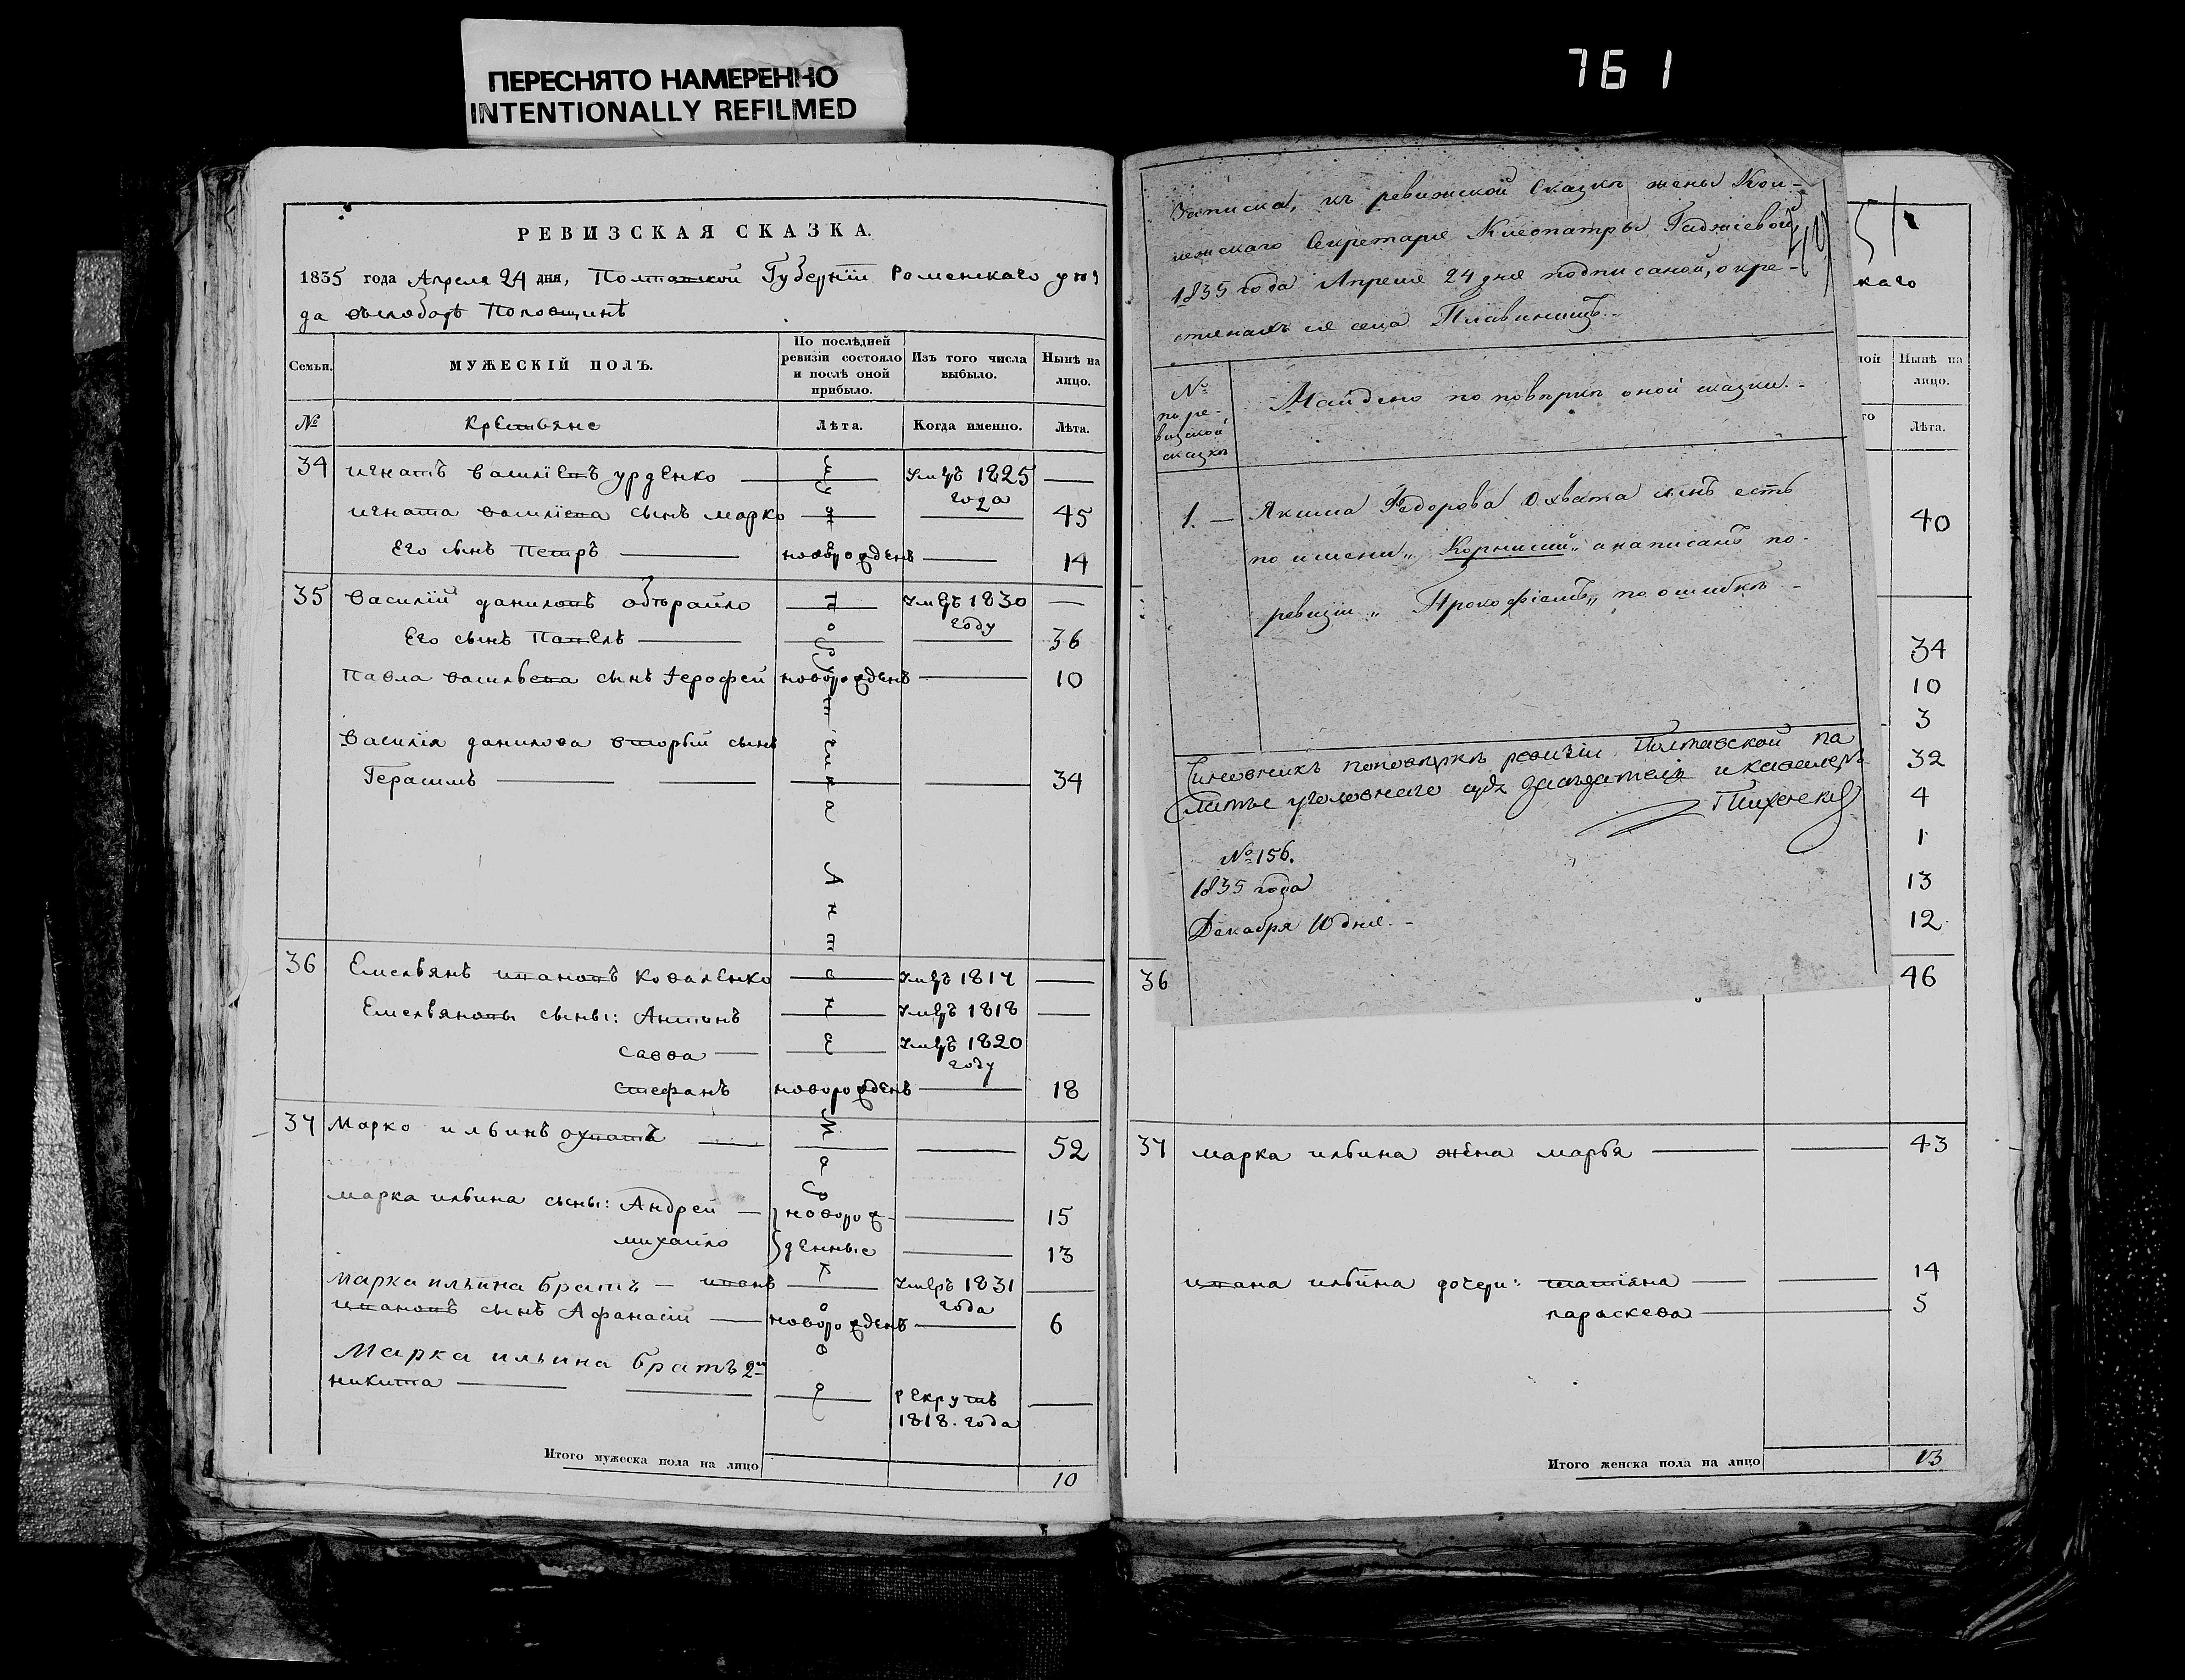 ПЕРЕСНЯТО НАМЕРЕННО
INTENTIONALLY REFILMED
761
РЕВИЗСКАЯ СКАЗКА.
1835 года Апреля 24 дня, Полтавской Губернїи Роменскаго уѣз
да
Семьи.
МУЖЕСКІЙ ПОЛЪ.
По послѣдней ревизіи состояло и послѣ оной прибыло.
Изъ того числа выбыло.
Нынѣ на лицо.
№
Крестьяне
Лѣта.
Когда именно.
Лѣта.
34 игнатъ василїевъ урденко Умеръ 1825 года
игната василїева сынъ марко 45
Его сынъ Петръ новорожденъ 14
35 Василїй даниловъ Умеръ 1830 году
Его сынъ Павелъ 36
Павла васильева сынъ Іерофей новорожденъ 10
Василїя данилова вторый сынъ
Герасимъ 34
36 Емельянъ ивановъ коваленко Умеръ 1817
Емельяновы сыны: Антонъ Умеръ 1818
савва Умеръ 1820 году
стефанъ новорожденъ 18
37 Марко ильинъ охватъ 52
марка ильина сыны: Андрей новорож- 15
михайло денные 13
Марка ильина братъ иванъ Умеръ 1831 года
ивановъ сынъ Афанасїй новорожденъ 6
Марка ильина братъ 2й
никита рекрутъ
1818. года
Итого мужеска пола на лицо 10
Записка, къ ревижской Сказкѣ жены Кол-
лежскаго Секретаря Клеопатры
1835 года Апреля 24 дня подписаной, о кре-
стянахъ ея села
№
по ре-
визской
сказкѣ
Найдено по повѣркѣ оной сказки.
1. Якима Федорова Охвата сынъ есть
по имени „Корнилїй„ а написанъ по
ревизіи „Прокофїемъ„ по ошибкѣ
Чиновникъ по повѣркѣ ревизіи Полтавской па
латы уголовнаго суда засѣдатель и кавалеръ
№ 156.
1835 года
Декабря 10 дня.
каго
ной
Нынѣ на лицо.
го
Лѣта.
40
34
10
3
32
4
1
13
12
36 46
37 марка ильина жена марья 43
ивана ильина дочери: татїяна 14
параскева 5
Итого женска пола на лицо 13